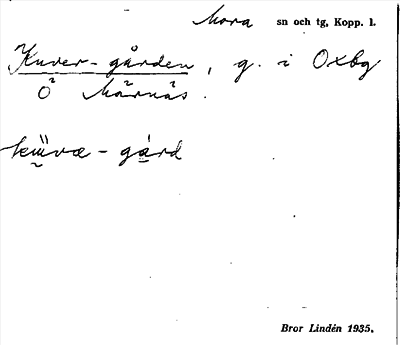 Mora sn och tg, Kopp. l.
Kuver-gården, g. i Oxbg
Ö Mårnäs.
gård
Bror Lindén 1935.